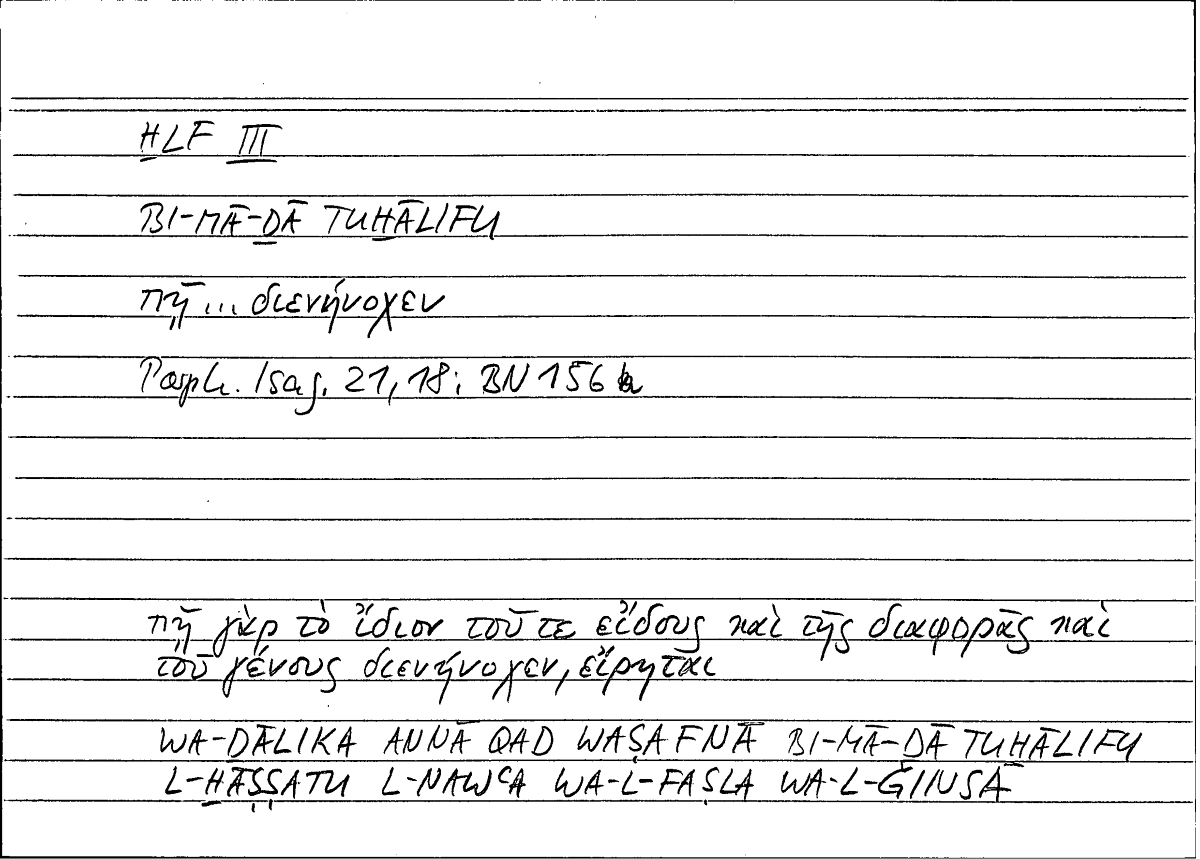 ḪLF III
BI-MĀ-ḎĀ TUḪĀLIFU
πῇ ... διενήνοχεν
Porph. Isag. 21,18; BN 156
πῇ γὰρ τὸ ἴδιον τοῦ τε εἴδους καὶ τῆς διαφορᾶς καὶ
τοῦ γένους διενήνοχεν, εἴρηται
WA-ḎĀLIKA ANNĀ QAD WAṢAFNĀ BI-MĀ-ḎĀ TUḪĀLIFU
L-ḪĀṢṢATU L-NAWʿA WA-L-FAṢLA WA-L-ǦINSA